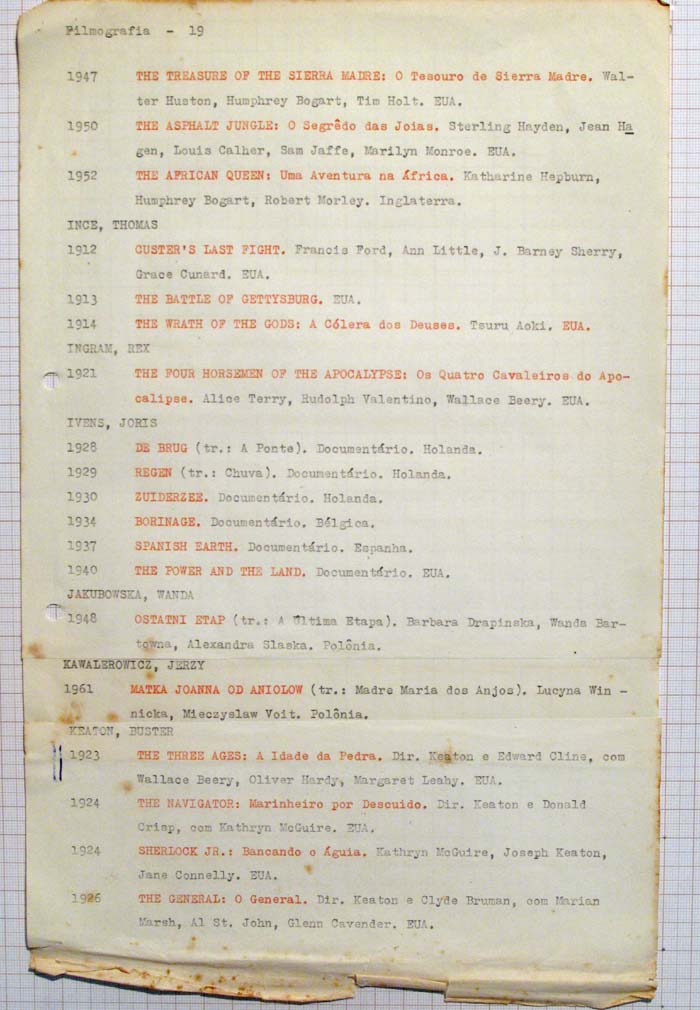 Filmografia - 19
1947 THE TREASURE OF THE SIERRA MADRE: O Tesouro de Sierra Madre. Wal-
ter Huston, Humphrey Bogart, Tim Holt. EUA.
1950 THE ASPHALT JUNGLE: O Segrêdo das Joias. Sterling Hayden, Jean Ha
gen, Louis Calher, Sam Jaffe, Marilyn Monroe. EUA.
1952 THE AFRICAN QUEEN: Uma Aventura na África. Katharine Hepburn,
Humphrey Bogart, Robert Morley. Inglaterra.
INCE, THOMAS
1912 CUSTER'S LAST FIGHT. Francis Ford, Ann Little, J. Barney Sherry,
Grace Cunard. EUA.
1913 THE BATTLE OF GETTYSBURG. EUA.
1914 THE WRATH OF THE GODS: A Cólera dos Deuses. Tsuru Aoki. EUA.
INGRAM, REX
1921 THE FOUR HORSEMEN OF THE APOCALYPSE: Os Quatro Cavaleiros do Apo-
calipse. Alice Terry, Rudolph Valentino, Wallace Beery. EUA.
IVENS, JORIS
1928 DE BRUG (tr.: A Ponte). Documentário. Holanda.
1929 REGEN (tr.: Chuva). Documentário. Holanda.
1930 ZUIDERZEE. Documentário. Holanda.
1934 BORINAGE. Documentário. Bélgica.
1937 SPANISH EARTH. Documentário. Espanha.
1940 THE POWER AND THE LAND. Documentário. EUA.
JAKUBOWSKA, WANDA
1948 OSTATNI ETAP (tr.: A Última Etapa). Barbara Drapinska, Wanda Bar-
towna, Alexandra Slaska. Polônia.
KAWALEROWICZ, JERZY
1961 MATKA JOANNA OD ANIOLOW (tr.: Madre Maria dos Anjos). Lucyna Win -
nicka, Mieczyslaw Voit. Polônia.
KEATON, BUSTER
1923 THE THREE AGES: A Idade da Pedra. Dir. Keaton e Edward Cline, com
Wallace Beery, Oliver Hardy, Margaret Leahy. EUA.
1924 THE NAVIGATOR: Marinheiro por Descuido. Dir. Keaton e Donald
Crisp, com Kathryn McGuire. EUA.
1924 SHERLOCK JR.: Bancando o Águia. Kathryn McGuire, Joseph Keaton,
Jane Connelly. EUA.
1926 THE GENERAL: O General. Dir. Keaton e Clyde Bruman, com Marian
Marsh, Al St. John, Glenn Cavender. EUA.